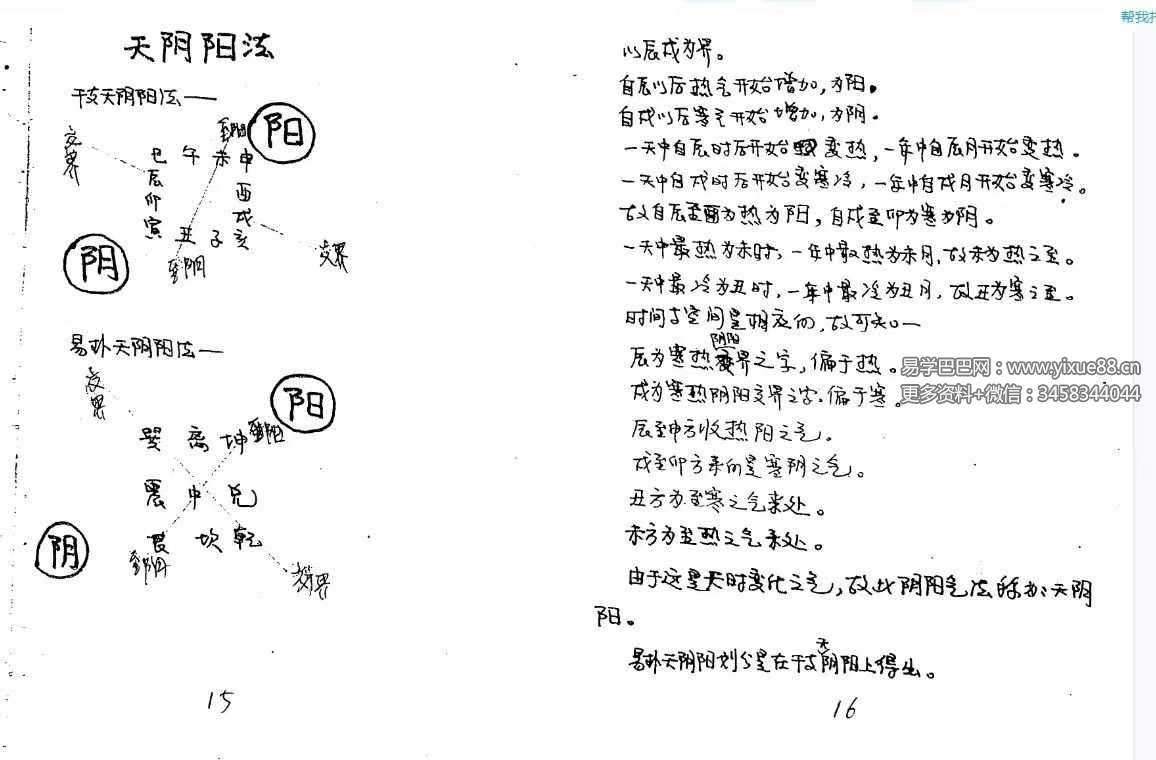 天阴阳法
干支天阴阳法——
阳
至阳
交界
巳 午 未 申
辰 酉
卯 戌
寅 丑 子 亥
阴
至阴
交界
易卦天阴阳法——
交界
阳
巽 离 坤 至阳
震 中 兑
艮 坎 乾
阴
至阴
交界
15
以辰戌为界。
自辰以后热气开始增加,为阳。
自戌以后寒气开始增加,为阴。
一天中自辰时后开始变热,一年中自辰月开始变热。
一天中自戌时后开始变寒冷,一年中自戌月开始变寒冷。
故自辰至酉为热为阳,自戌至卯为寒为阴。
一天中最热为未时,一年中最热为未月,故未为热之至。
一天中最冷为丑时,一年中最冷为丑月,故丑为寒之至。
时间与空间是相应的,故可知——
辰为寒热阴阳交界之字,偏于热。
戌为寒热阴阳交界之字,偏于寒。
辰至申方收热阳之气。
戌至卯方来的是寒阴之气。
丑方为至寒之气来处。
未方为至热之气来处。
由于这是天时变化之气,故此阴阳气法称为:天阴
阳。
易卦天阴阳划分是在干支天阴阳上得出。
16
易学巴巴网:www.yixue88.cn
更多资料+微信:3458344044